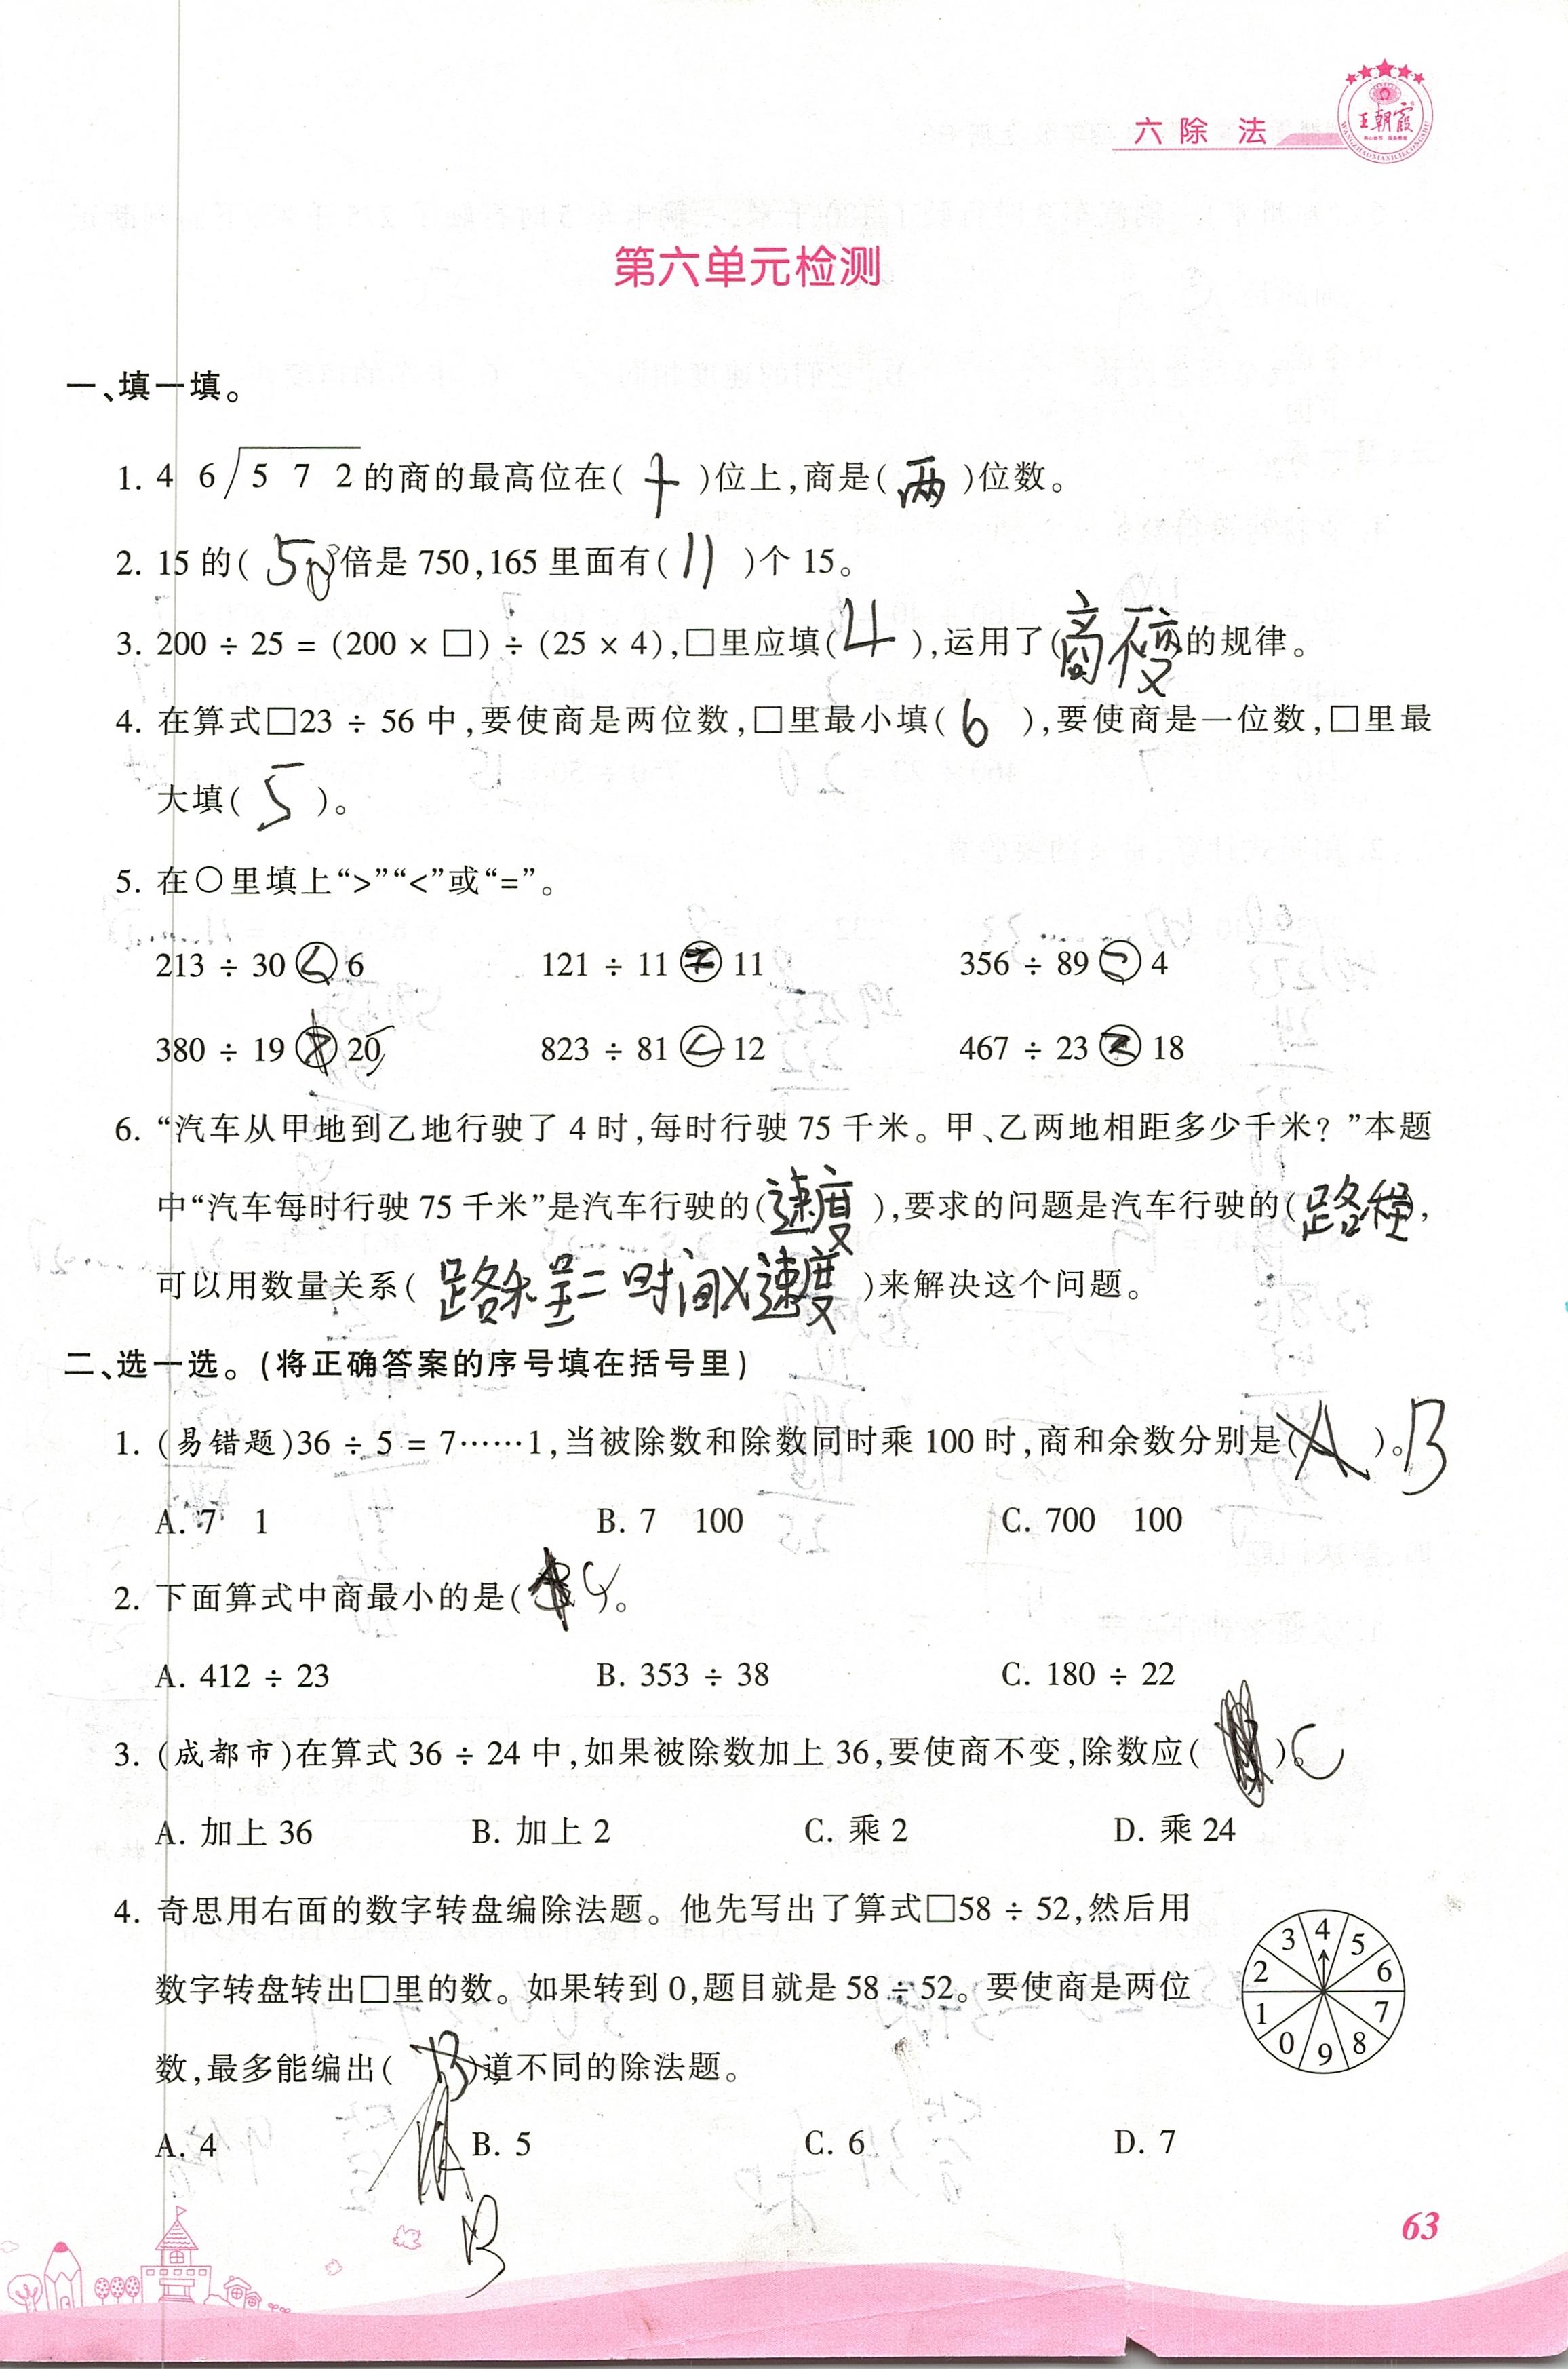 六 除 法
王朝霞
第六单元检测
一、填一填。
1. 4 6 5 7 2 的商的最高位在( 十 )位上,商是( 两 )位数。
2. 15 的( 50 )倍是 750,165 里面有( 11 )个 15。
3. 200 ÷ 25 = (200 × □) ÷ (25 × 4),□里应填( 4 ),运用了(商不变)的规律。
4. 在算式□23 ÷ 56 中,要使商是两位数,□里最小填( 6 ),要使商是一位数,□里最
大填( 5 )。
5. 在○里填上“>”“<”或“=”。
213 ÷ 30 6 121 ÷ 11 = 11 356 ÷ 89 4
380 ÷ 19 20 823 ÷ 81 < 12 467 ÷ 23 18
6. “汽车从甲地到乙地行驶了 4 时,每时行驶 75 千米。甲、乙两地相距多少千米？”本题
中“汽车每时行驶 75 千米”是汽车行驶的(速度),要求的问题是汽车行驶的(路程),
可以用数量关系( 路程=时间×速度 )来解决这个问题。
二、选一选。(将正确答案的序号填在括号里)
1. (易错题)36 ÷ 5 = 7……1,当被除数和除数同时乘 100 时,商和余数分别是( A )。B
A. 7 1 B. 7 100 C. 700 100
2. 下面算式中商最小的是( C )。
A. 412 ÷ 23 B. 353 ÷ 38 C. 180 ÷ 22
3. (成都市)在算式 36 ÷ 24 中,如果被除数加上 36,要使商不变,除数应( )。C
A. 加上 36 B. 加上 2 C. 乘 2 D. 乘 24
4. 奇思用右面的数字转盘编除法题。他先写出了算式□58 ÷ 52,然后用
数字转盘转出□里的数。如果转到 0,题目就是 58 ÷ 52。要使商是两位
数,最多能编出( B )道不同的除法题。
3 4 5
2 6
1 7
0 9 8
A. 4 B. 5 C. 6 D. 7
B
63